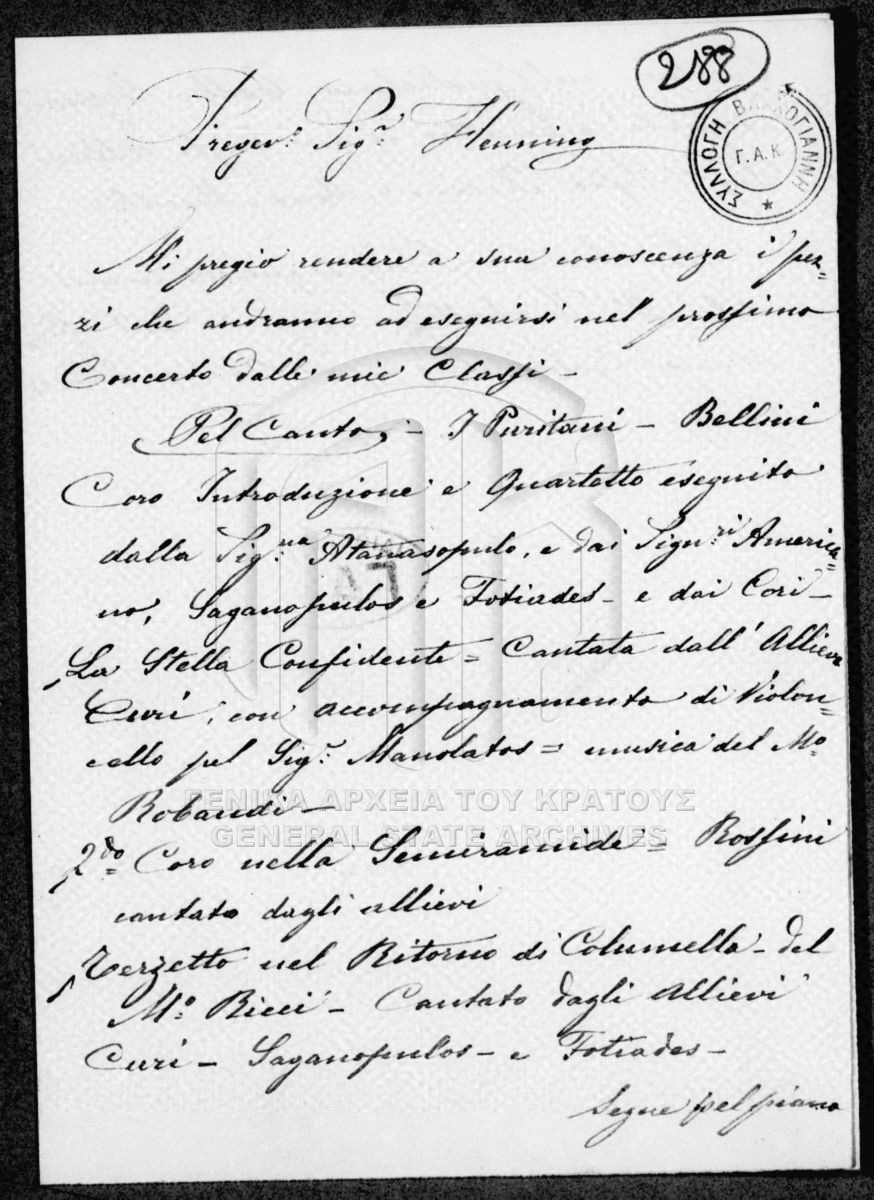 288
ΣΥΛΛΟΓΗ ΒΛΑΧΟΓΙΑΝΝΗ
Γ.Α.Κ.
Pregev: Sigr Henning
Mi pregio rendere a sua conoscenza i pez=
zi che andranno ad eseguirsi nel prossimo
Concerto dalle mie Classi –
Pel Canto, – I Puritani – Bellini
Coro Introduzione e Quartetto eseguito
dalla Sig.na Atanasopulo, e dai Signri America=
no, Saganopulos e Fotiades – e dai Cori –
La Stella Confidente = Cantata dall' Allieva
Curi, con accompagnamento di Violon=
cello pel Sigr Manolatos = musica del Mo
Robaudi –
2do Coro nella Semiramide = Rossini
cantato dagli allievi
Terzetto nel Ritorno di Columella – del
Mo Ricci – Cantato dagli Allievi
Curi – Saganopulos – e Fotiades –
Segue pel piano
ΓΕΝΙΚΑ ΑΡΧΕΙΑ ΤΟΥ ΚΡΑΤΟΥΣ
GENERAL STATE ARCHIVES